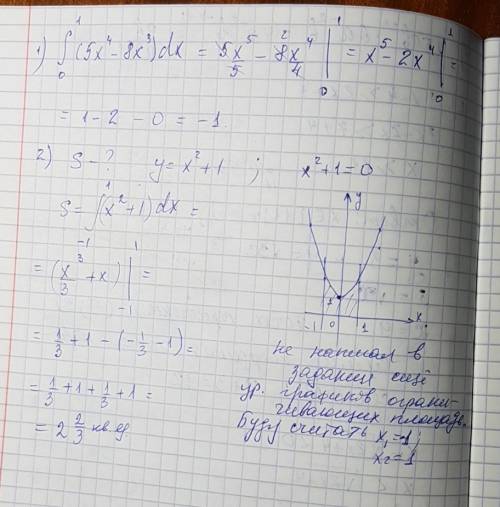 1) ∫₀¹ (5x⁴ - 8x³)dx = 5x⁵/5 - 8x⁴/4 |₀¹ = x⁵ - 2x⁴ |₀¹ =
= 1 - 2 - 0 = -1.
2) S - ? y = x² + 1 ; x² + 1 = 0
S = ∫₋₁¹ (x² + 1) dx =
= (x³/3 + x) |₋₁¹ =
= 1/3 + 1 - (-1/3 - 1) =
= 1/3 + 1 + 1/3 + 1 =
= 2 2/3 кв. ед.
y
1
-1 0 1 x
не написал в
задании ещё
ур. графиков ограни-
чивающих площадь.
Буду считать x₁ = -1;
x₂ = 1